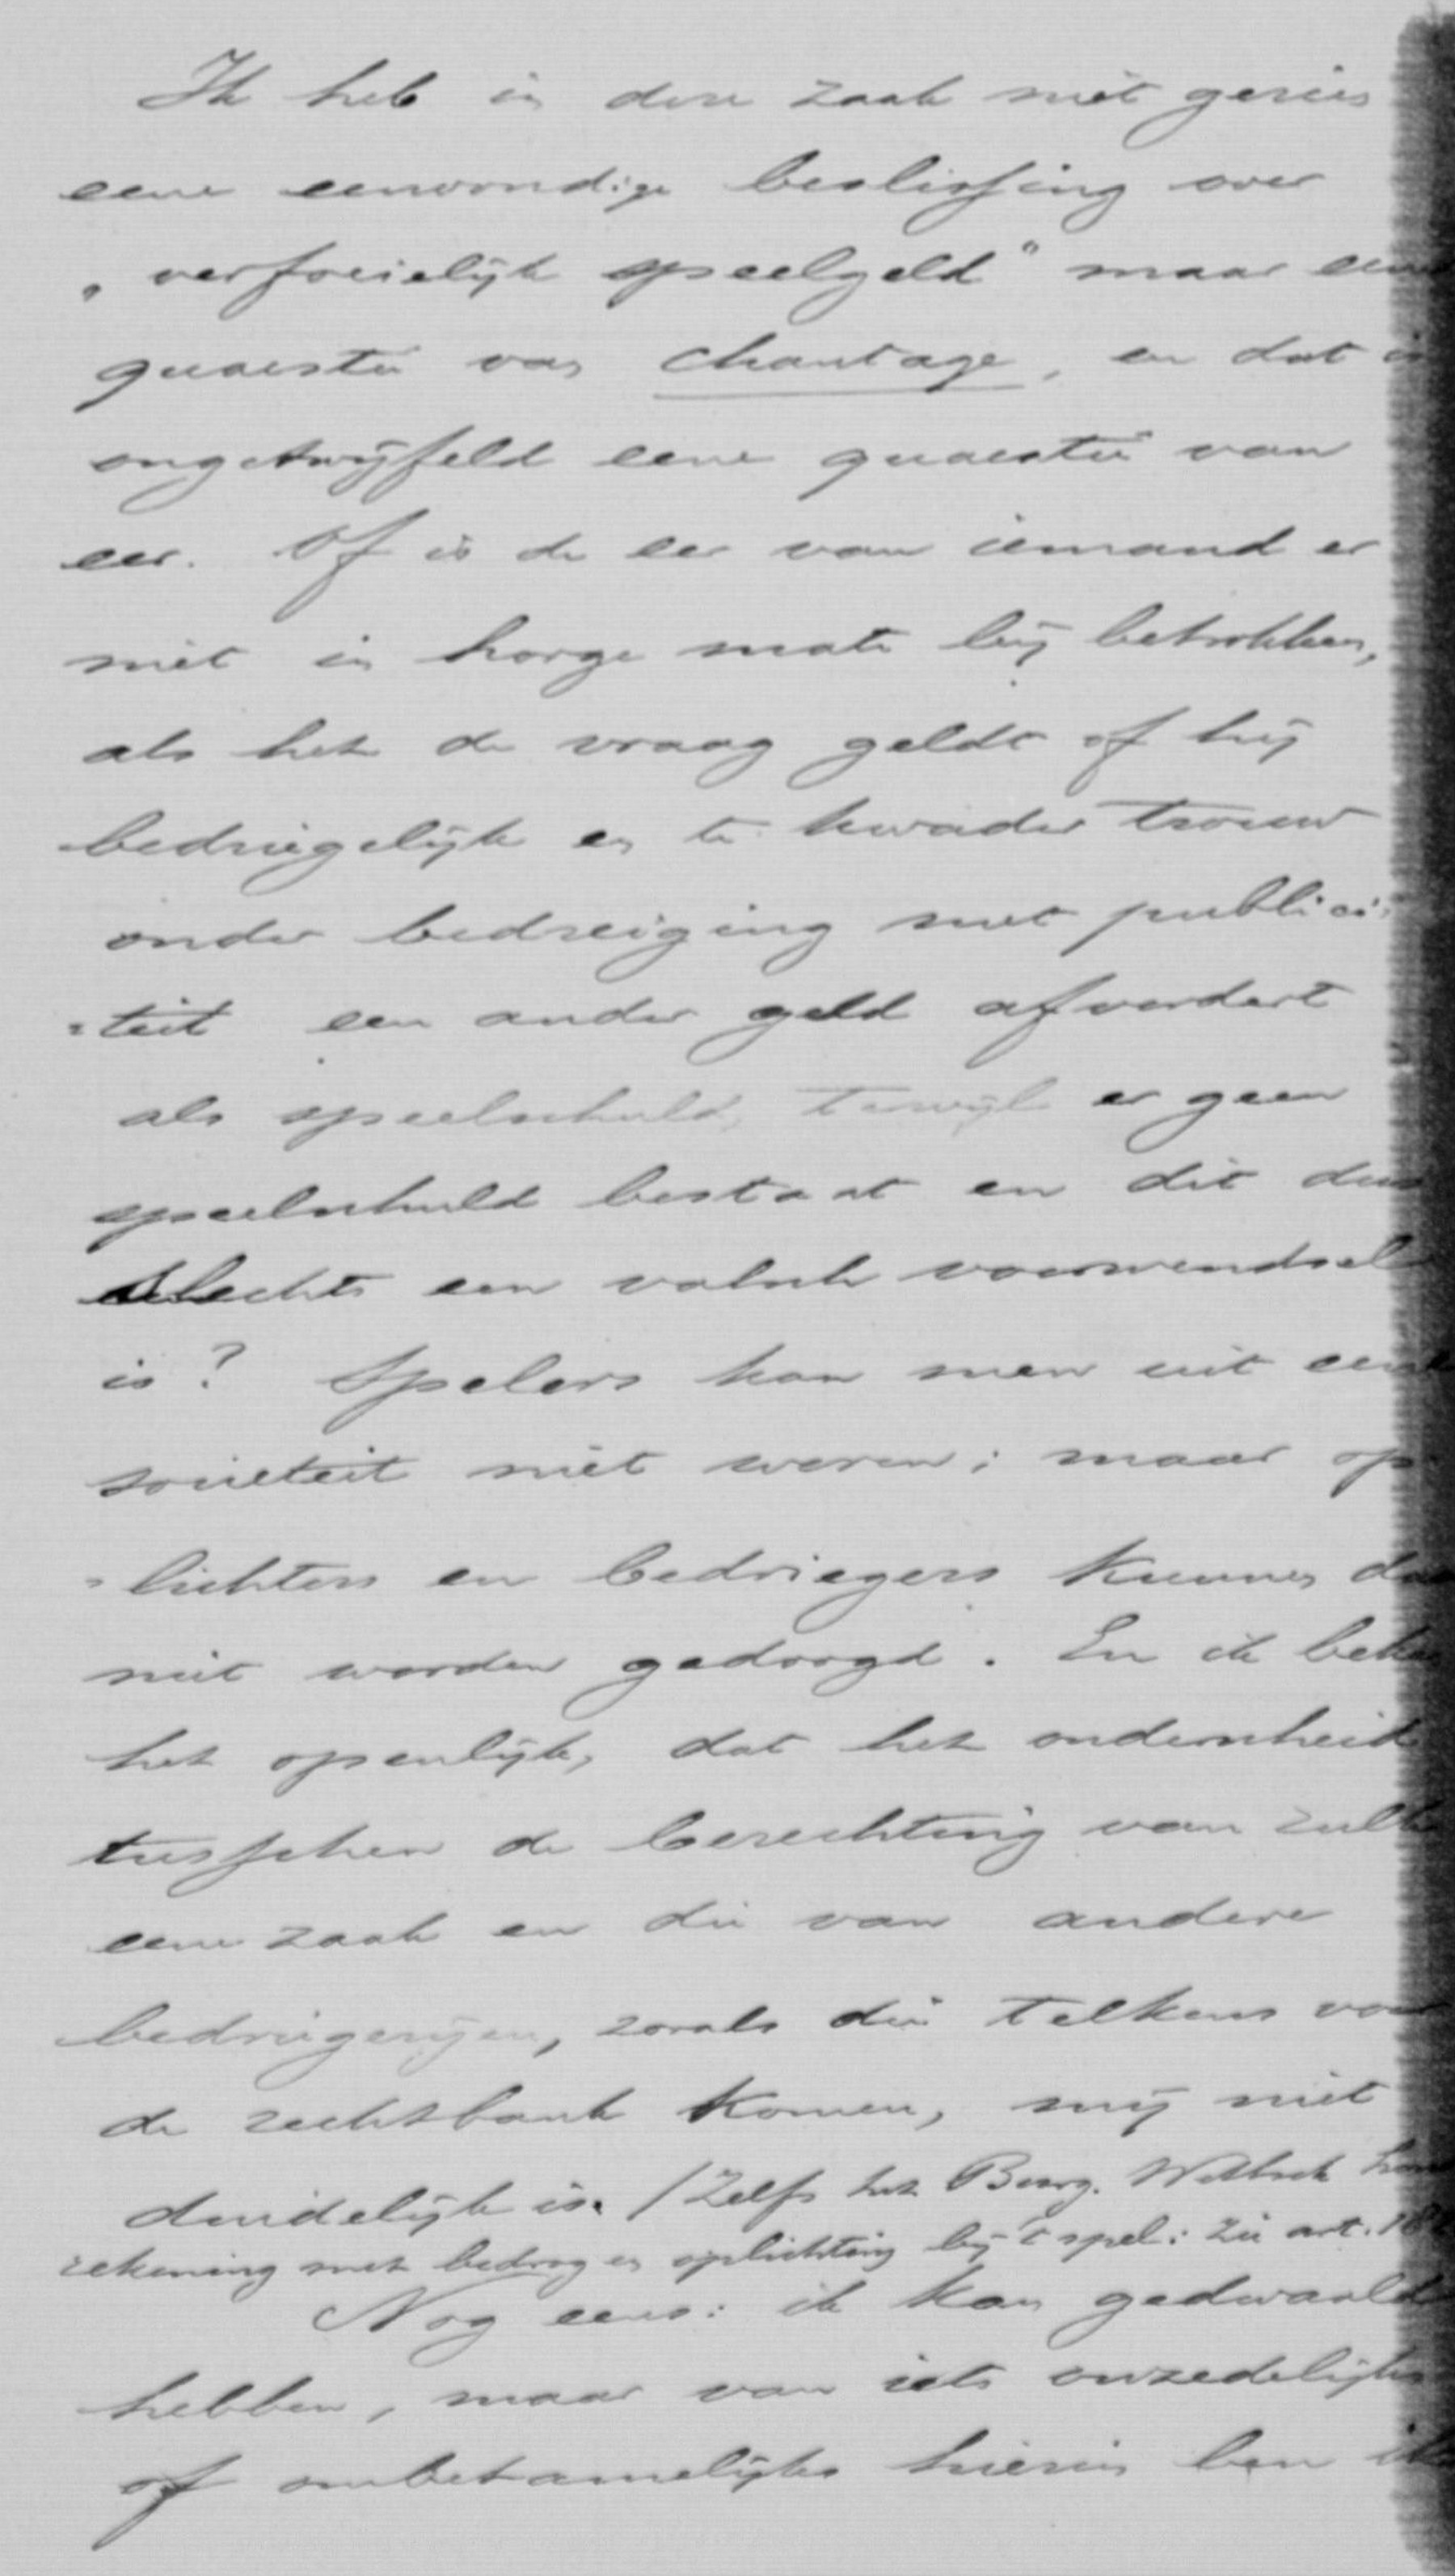 Ik heb in deze zaak niet gezien
eene eenvoudige beslissing over
„verfoeielijk speelgeld" maar eene
quaestie van chantage, en dat is
ongetwijfeld eene quaestie van
eer. Of is de eer van iemand er
niet in hooge mate bij betrokken,
als het de vraag geldt of hij
bedriegelijk en te kwader trouw
onder bedreiging met publici-
=teit een ander geld afvordert
als speelschuld, terwijl er geen
speelschuld bestaat en dit dus
slechts een valsch voorwendsel
is? Spelers kan men uit eene
sociëteit niet weren; maar op-
=lichters en bedriegers kunnen
niet worden gedoogd. En ik beken
het openlijk, dat het onderscheid
tusschen de berechting van zulk
eene zaak en die van andere
bedriegerijen, zooals die telkens voor
de rechtbank komen, mij niet
duidelijk is. / Zelfs het Burg. Wetboek
rekening met bedrog en oplichting bij 't spel: zie art.
Nog eens: ik kan gedwaald
hebben, maar van iets onzedelijks
of onbetamelijks hierin ben ik